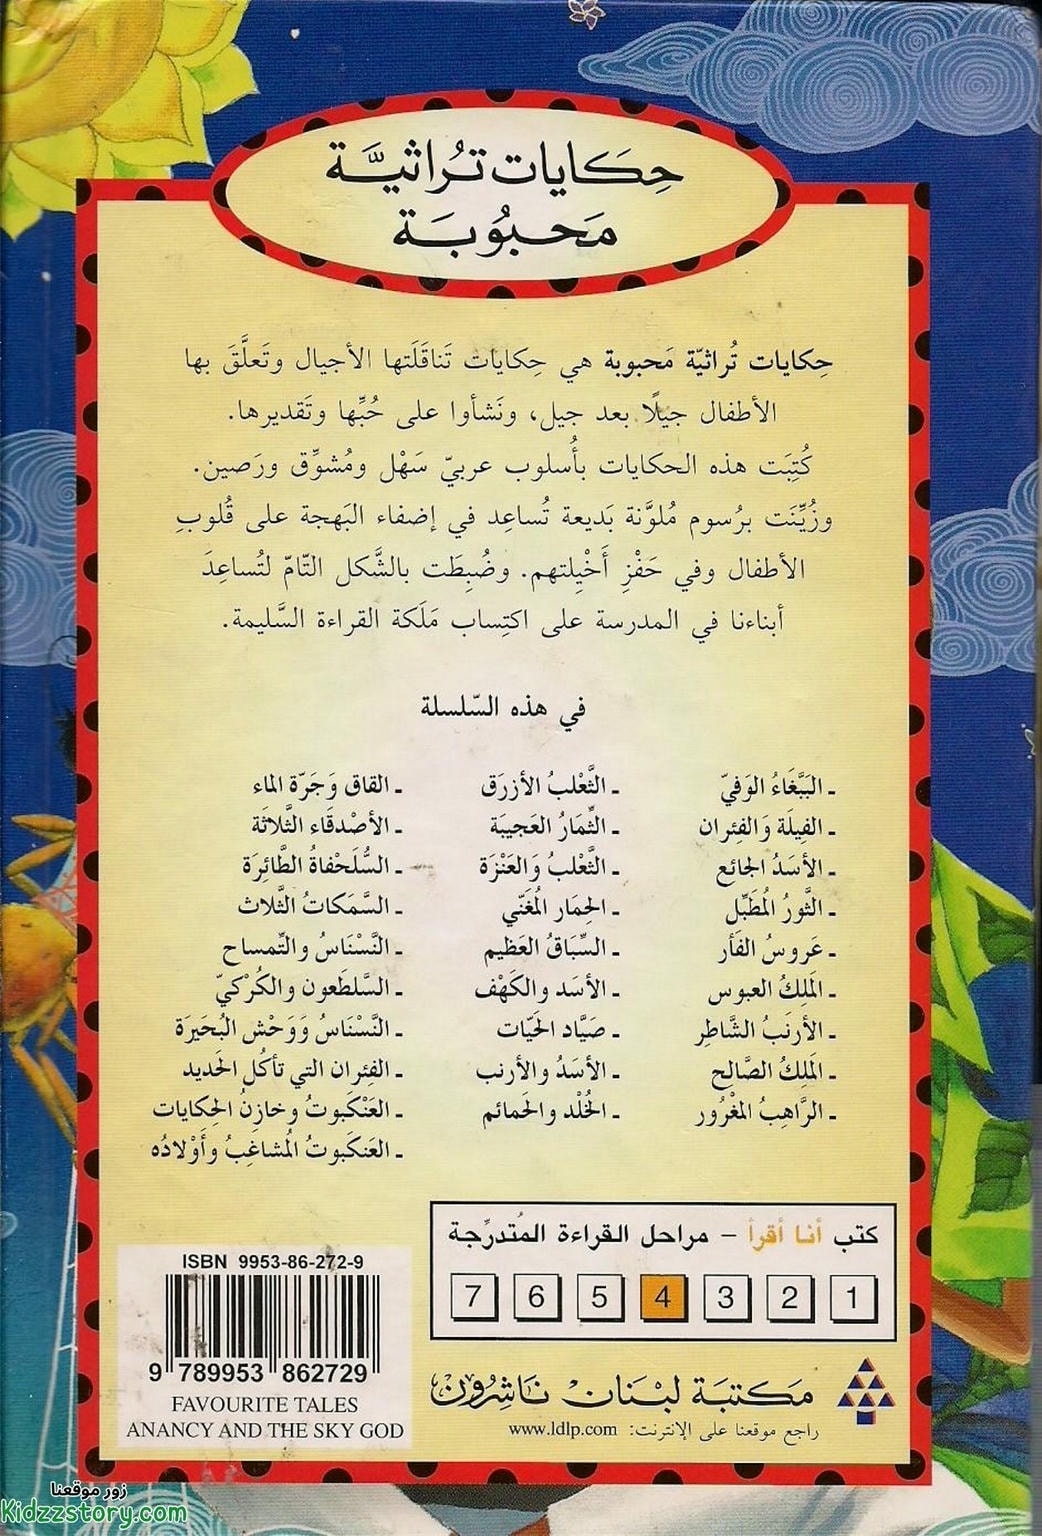 حِكَايات تُراثيَّة
مَحبُوبَة
حِكايات تُراثيّة مَحبوبة هي حِكايات تَناقَلَتها الأجيال وتَعلَّقَ بها
الأطفال جيلًا بعد جيل، ونَشأوا على حُبِّها وتَقديرها.
كُتِبَت هذه الحكايات بأُسلوب عربيّ سَهْل ومُشوِّق ورَصين.
وزُيِّنَت برُسوم مُلوَّنة بَديعة تُساعِد في إضفاء البَهجة على قُلوبِ
الأطفال وفي حَفْزِ أَخْيِلتهم. وضُبِطَت بالشَّكل التّامّ لتُساعِدَ
أبناءنا في المدرسة على اكتِساب مَلَكة القراءة السَّليمة.
في هذه السّلسلة
ـ البَبَّغَاءُ الوَفيّ
ـ الفِيلَة وَالفِئران
ـ الأسَدُ الجائع
ـ الثَّورُ المُطَبِّل
ـ عَروسُ الفَأر
ـ المَلِكُ العبوس
ـ الأرنَبُ الشَّاطِر
ـ المَلِكُ الصَّالِح
ـ الرَّاهِبُ المغْرُور
ـ الثَّعْلبُ الأزرَق
ـ الثِّمَارُ العَجيبَة
ـ الثَّعْلبُ وَالعَنْزَة
ـ الحِمَار المُغَنّي
ـ السِّبَاقُ العَظيم
ـ الأسَد والكَهْف
ـ صَيَّاد الحَيّات
ـ الأسَدُ والأرنب
ـ الخُلْد والحَمائم
ـ القاق وَجَرّة الماء
ـ الأصْدقَاء الثَّلاثَة
ـ السُّلَحْفاةُ الطَّائِرَة
ـ السَّمَكاتُ الثَّلاث
ـ النَّسْنَاسُ والتِّمساح
ـ السَّلطَعون والكُرْكيّ
ـ النَّسْنَاسُ وَوَحْش البُحَيرَة
ـ الفِئران التي تأكُل الحَديد
ـ العَنْكَبوتُ وخازِنُ الحِكايات
ـ العَنكَبوتُ المُشاغِبُ وأَوْلادُه
كتب أنا أقرأ – مراحل القراءة المُتدرِّجة
1 2 3 4 5 6 7
ISBN 9953-86-272-9
9 789953 862729
FAVOURITE TALES
ANANCY AND THE SKY GOD
مكتبة لبنان ناشرون
راجع موقعنا على الإنترنت: www.ldlp.com
زور موقعنا
Kidzzstory.com